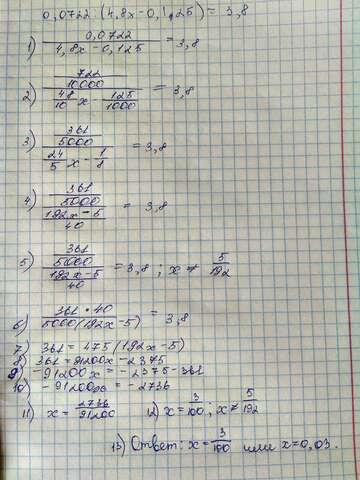 0,0722 : (4,8x-0,125) = 3,8
1) 0,0722 / 4,8x-0,125 = 3,8
2) 722/10000 / 48/10 x - 125/1000 = 3,8
3) 361/5000 / 24/5 x - 1/8 = 3,8
4) 361/5000 / 192x-5/40 = 3,8
5) 361/5000 / 192x-5/40 = 3,8 ; x ≠ 5/192
6) 361 • 40 / 5000(192x-5) = 3,8
7) 361 = 475(192x-5)
8) 361 = 91200x - 2375
9) -91200x = -2375-361
10) -91200x = -2736
11) x = 2736/91200 12) x = 3/100 ; x ≠ 5/192
13) Ответ: x = 3/100 или x=0,03.